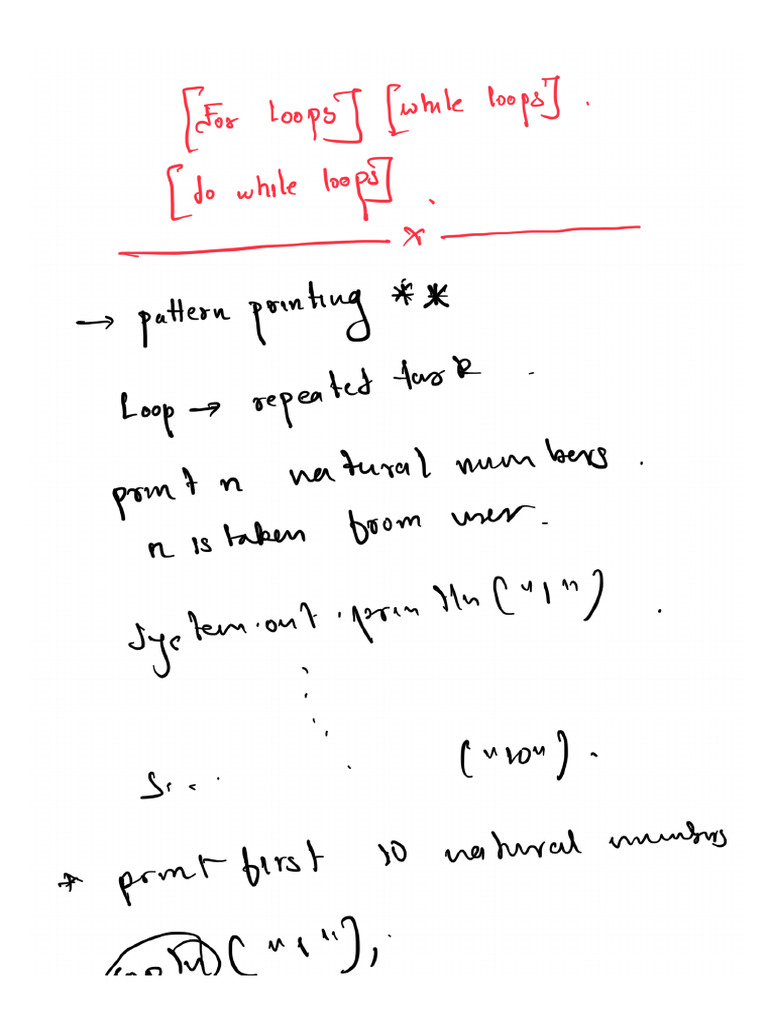 [For Loops] [while loops].
[do while loops].
x
→ pattern printing **
Loop → repeated task.
print n natural numbers.
n is taken from user.
System.out.println("1").
S... ("10").
* print first 10 natural numbers
("1");